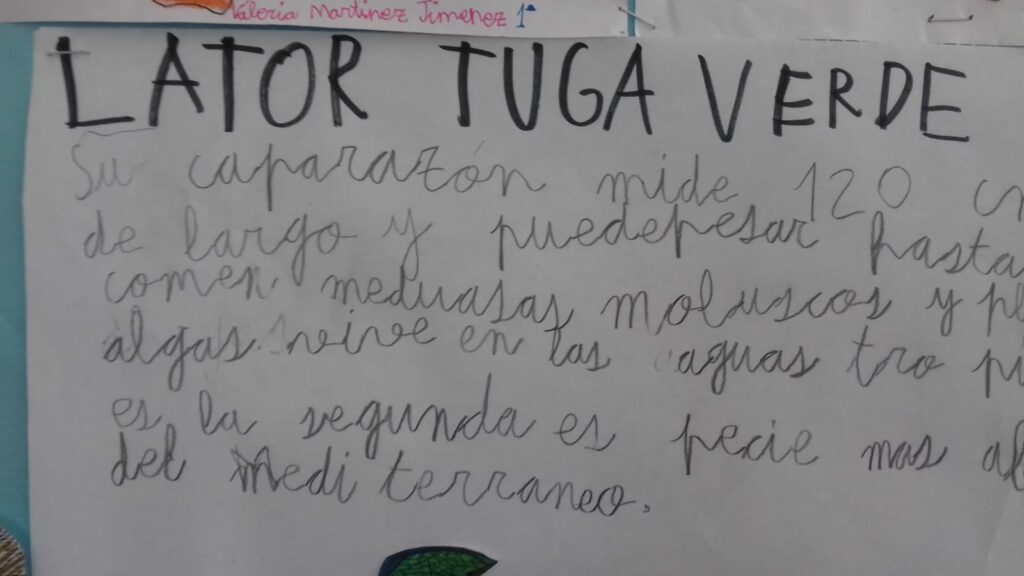 Valeria Martinez Jimenez 1ª
LATOR TUGA VERDE
Su caparazón mide 120
de largo y puedepesar hasta
comen meduasas moluscos y
algas. vive en las aguas tro
es la segunda es pecie mas
del Medi terraneo.